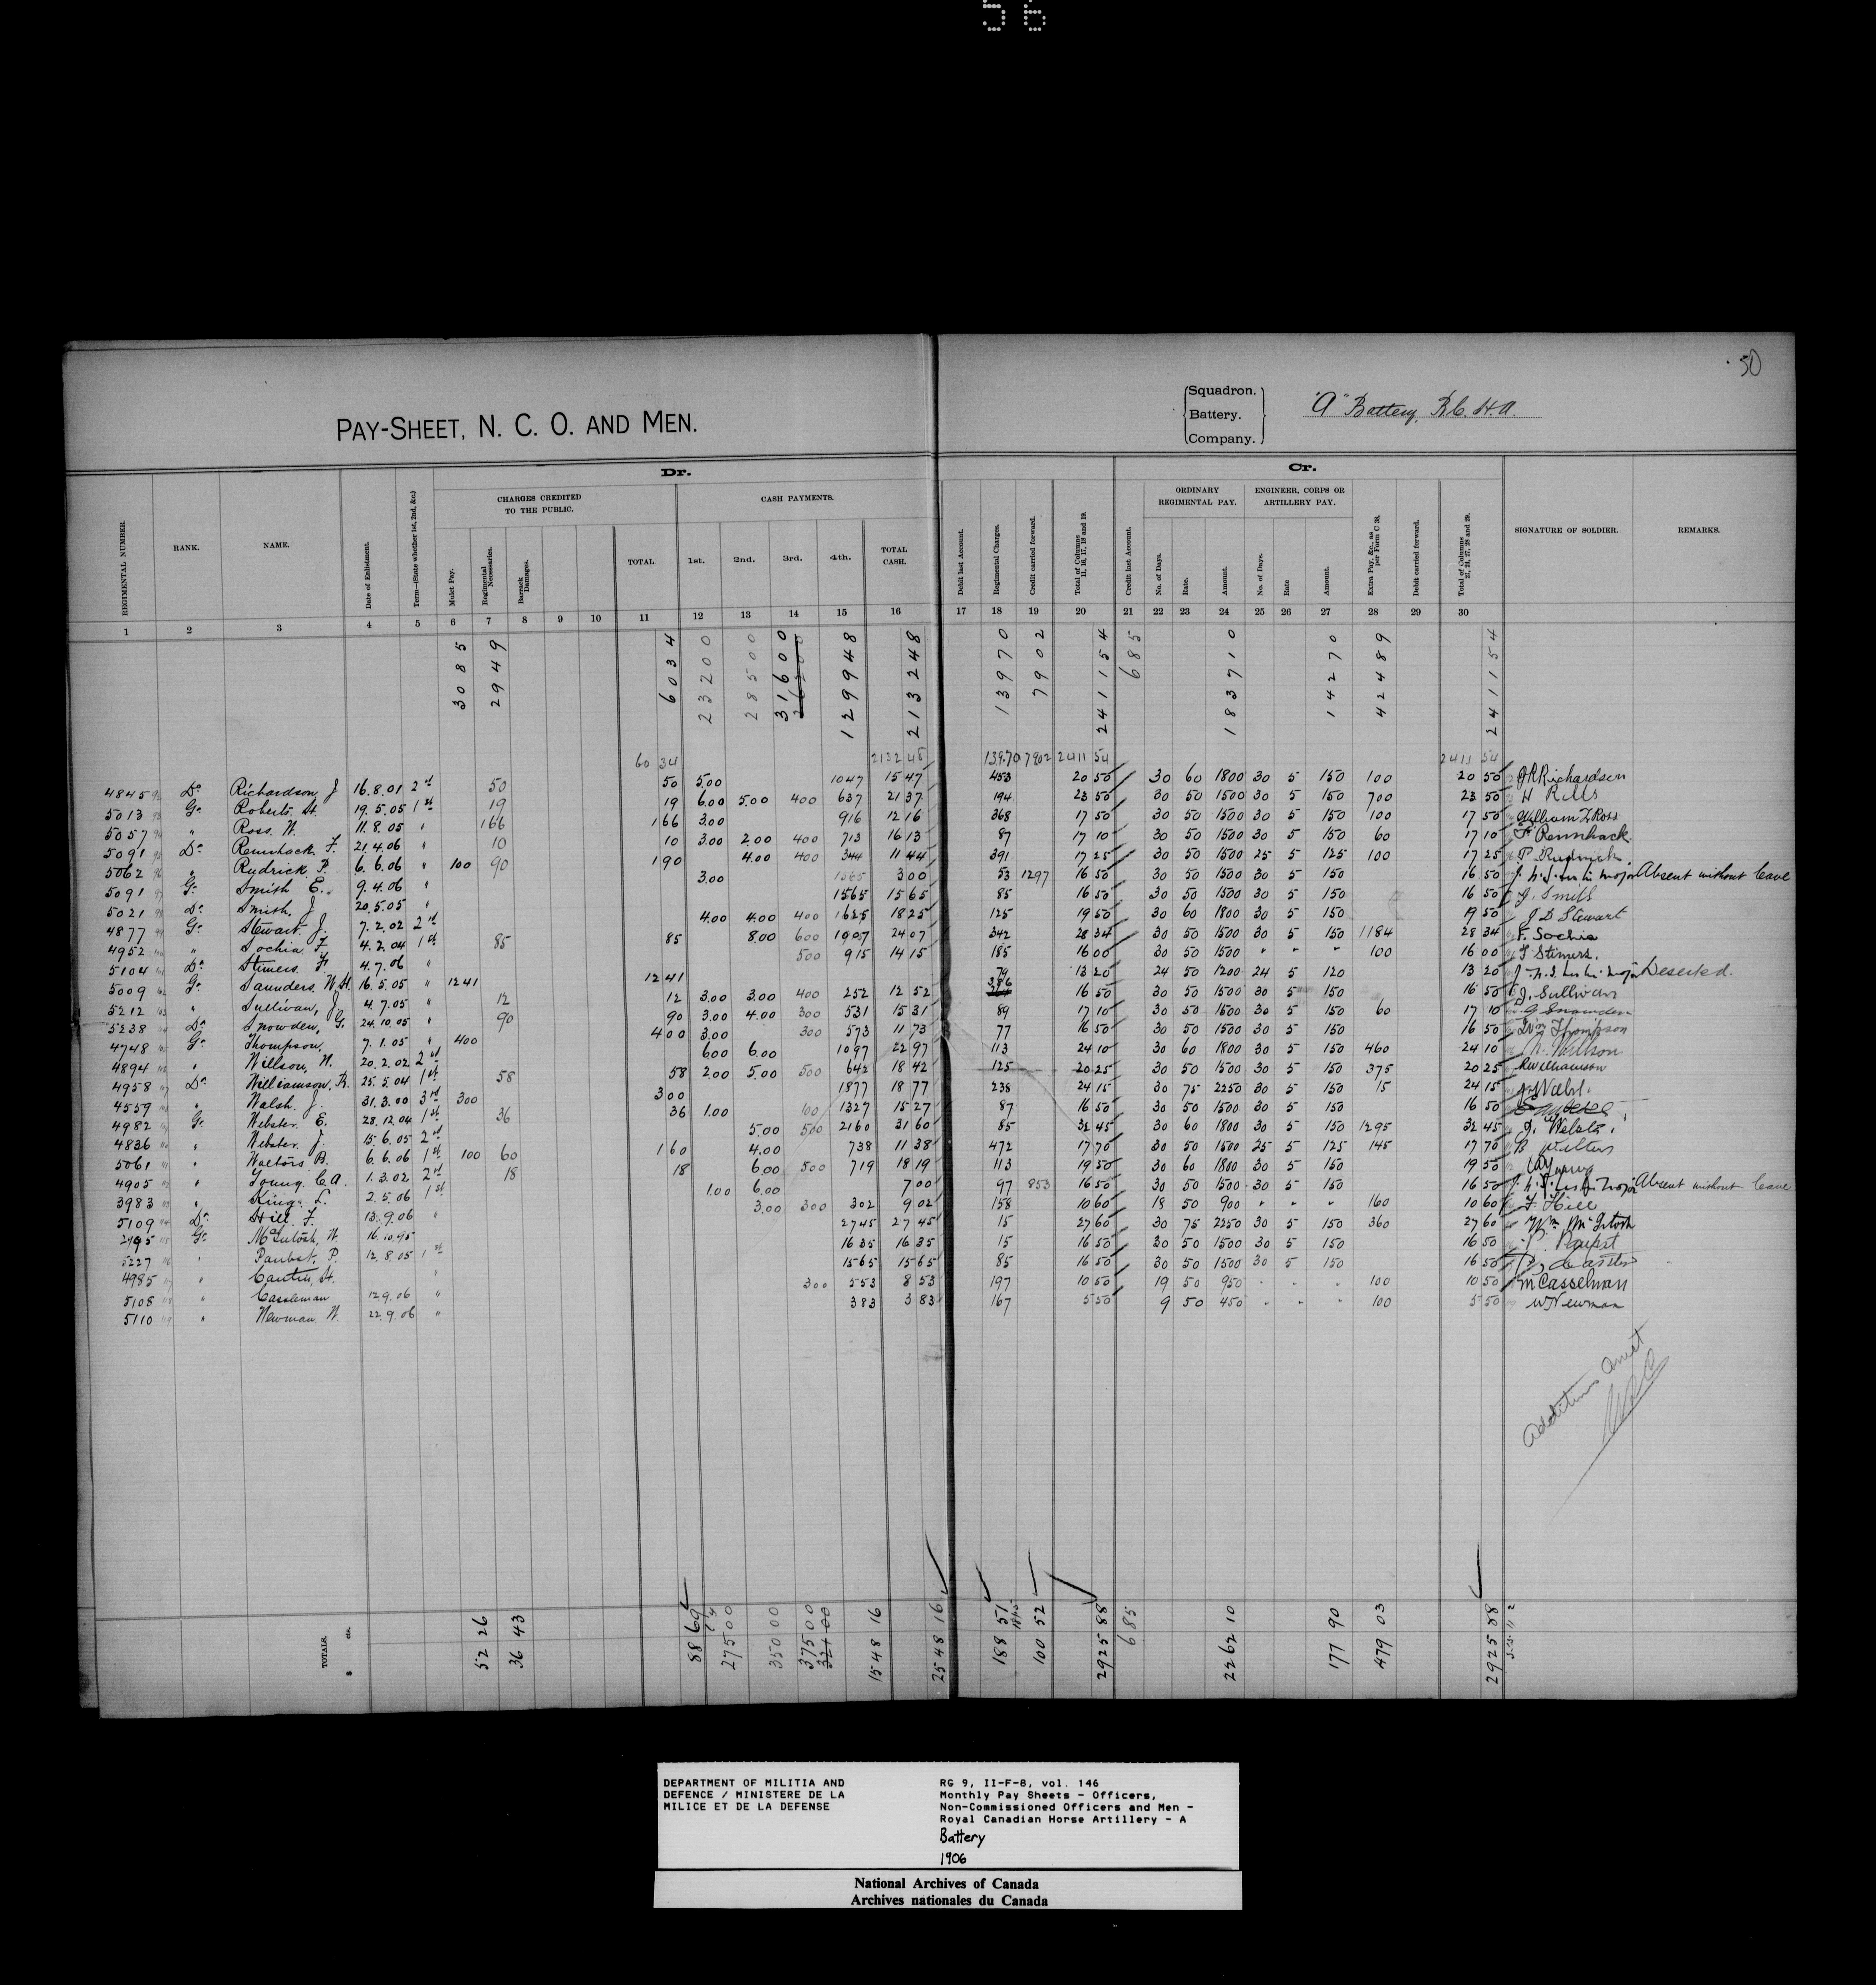 56
50
PAY-SHEET, N. C. O. AND MEN.
Squadron.
Battery.
Company.
"A" Battery, R.C.H.A.
Dr.
Cr.
CHARGES CREDITED TO THE PUBLIC.
CASH PAYMENTS.
ORDINARY REGIMENTAL PAY.
ENGINEER, CORPS OR ARTILLERY PAY.
REGIMENTAL NUMBER. RANK. NAME. Date of Enlistment. Term—(State whether 1st, 2nd, &c.) Mulct Pay. Regimental Necessaries. Barrack Damages. TOTAL 1st. 2nd. 3rd. 4th. TOTAL CASH. Debit last Account. Regimental Charges. Credit carried forward. Total of Columns 11, 16, 17, 18 and 19. Credit last Account. No. of Days. Rate. Amount. No. of Days. Rate Amount. Extra Pay, &c., as per Form C 38. Debit carried forward. Total of Columns 21, 24, 27, 28 and 29. SIGNATURE OF SOLDIER. REMARKS.
1 2 3 4 5 6 7 8 9 10 11 12 13 14 15 16 17 18 19 20 21 22 23 24 25 26 27 28 29 30
3085 2949 6034 23200 28500 31600 129948 213248 13970 7902 241154 685 183710 14270 42489 241154
60 34 2132 48 139.70 7902 2411 54 2411 54
4845 Dr Richardson, J 16.8.01 2nd 50 50 5.00 1047 1547 453 20 50 30 60 1800 30 5 150 100 20 50 J R Richardson
5013 Gr Roberts. H. 19.5.05 1st 19 19 6.00 5.00 400 637 2137 194 23 50 30 50 1500 30 5 150 700 23 50 H
5057 " Ross. W. 11.8.05 " 166 166 3.00 916 1216 368 17 50 30 50 1500 30 5 150 100 17 50 William Ross
5091 Dr Rennhack. F. 21.4.06 " 10 10 3.00 2.00 400 713 1613 87 17 10 30 50 1500 30 5 150 60 17 10 F Rennhack
5062 " Rudrick P. 6.6.06 " 100 90 190 4.00 400 344 1144 391 17 25 30 50 1500 25 5 125 100 17 25 P Rudrick
5091 Gr Smith E. 9.4.06 " 3.00 300 53 1297 16 50 30 50 1500 30 5 150 16 50 Absent without leave
5021 Dr Smith, J 20.5.05 " 1565 1565 85 16 50 30 50 1500 30 5 150 16 50 J. Smith
4877 Gr Stewart. J. 7.2.02 2nd 4.00 4.00 400 1625 1825 125 19 50 30 60 1800 30 5 150 19 50 J D Stewart
4952 " Sochia F. 4.2.04 1st 85 85 8.00 600 1007 2407 342 28 34 30 50 1500 30 5 150 1184 28 34 F. Sochia
5104 Dr Stimers. F. 4.7.06 " 500 915 1415 185 16 00 30 50 1500 " " " 100 16 00 F Stimers.
5009 Gr Saunders. W.H. 16.5.05 " 1241 1241 79 13 20 24 50 1200 24 5 120 13 20 Deserted.
5212 " Sullivan, J 4.7.05 " 12 12 3.00 3.00 400 252 1252 386 16 50 30 50 1500 30 5 150 16 50 J. Sullivan
5238 Dr Snowden, G. 24.10.05 " 90 90 3.00 4.00 300 531 1531 89 17 10 30 50 1500 30 5 150 60 17 10 G Snowden
4748 Gr Thompson, 7.1.05 " 400 400 3.00 300 573 1173 77 16 50 30 50 1500 30 5 150 16 50 Wm Thompson
4894 " Willson, W. 20.2.02 2nd 600 6.00 1097 2297 113 24 10 30 60 1800 30 5 150 460 24 10
4958 Dr Williamson, R. 25.5.04 1st 58 58 2.00 5.00 500 642 1842 125 20 25 30 50 1500 30 5 150 375 20 25 R Williamson
4559 " Walsh. J. 31.3.00 3rd 300 300 1877 1877 238 24 15 30 75 2250 30 5 150 15 24 15
4982 Gr Webster. E. 28.12.04 1st 36 36 1.00 100 1327 1527 87 16 50 30 50 1500 30 5 150 16 50
4836 " Webster. J. 15.6.05 2nd 5.00 500 2160 3160 85 32 45 30 60 1800 30 5 150 1295 32 45
5061 " Walters B. 6.6.06 1st 100 60 160 4.00 738 1138 472 17 70 30 50 1500 25 5 125 145 17 70 B Walters
4905 " Young. C.A. 1.3.02 2nd 18 18 6.00 500 719 1819 113 19 50 30 60 1800 30 5 150 19 50 C A Young
3983 " King. L. 2.5.06 1st 1.00 6.00 700 97 853 16 50 30 50 1500 30 5 150 16 50 Absent without leave
5109 Dr Hill. F. 13.9.06 " 3.00 300 302 902 158 10 60 18 50 900 " " " 160 10 60 F Hill
2495 Gr McIntosh, W 16.10.95 2745 2745 15 27 60 30 75 2250 30 5 150 360 27 60 Wm McIntosh
5227 " Paubst, P. 12.8.05 1st 1635 1635 15 16 50 30 50 1500 30 5 150 16 50 P. Paubst
4985 " Cantin, H. " 1565 1565 85 16 50 30 50 1500 30 5 150 16 50
5108 " Cassleman 12.9.06 " 300 553 853 197 10 50 19 50 950 " " " 100 10 50 M Casselman
5110 " Newman W. 22.9.06 " 383 383 167 5 50 9 50 450 " " " 100 5 50 W Newman
Additions
TOTALS. $ cts. 52 26 36 43 88 69 275 00 350 00 375 00 1548 16 2548 16 188 51 100 52 2925 88 685 2262 10 177 90 479 03 2925 88
DEPARTMENT OF MILITIA AND DEFENCE / MINISTERE DE LA MILICE ET DE LA DEFENSE
RG 9, II-F-8, vol. 146
Monthly Pay Sheets - Officers,
Non-Commissioned Officers and Men -
Royal Canadian Horse Artillery - A
Battery
1906
National Archives of Canada
Archives nationales du Canada